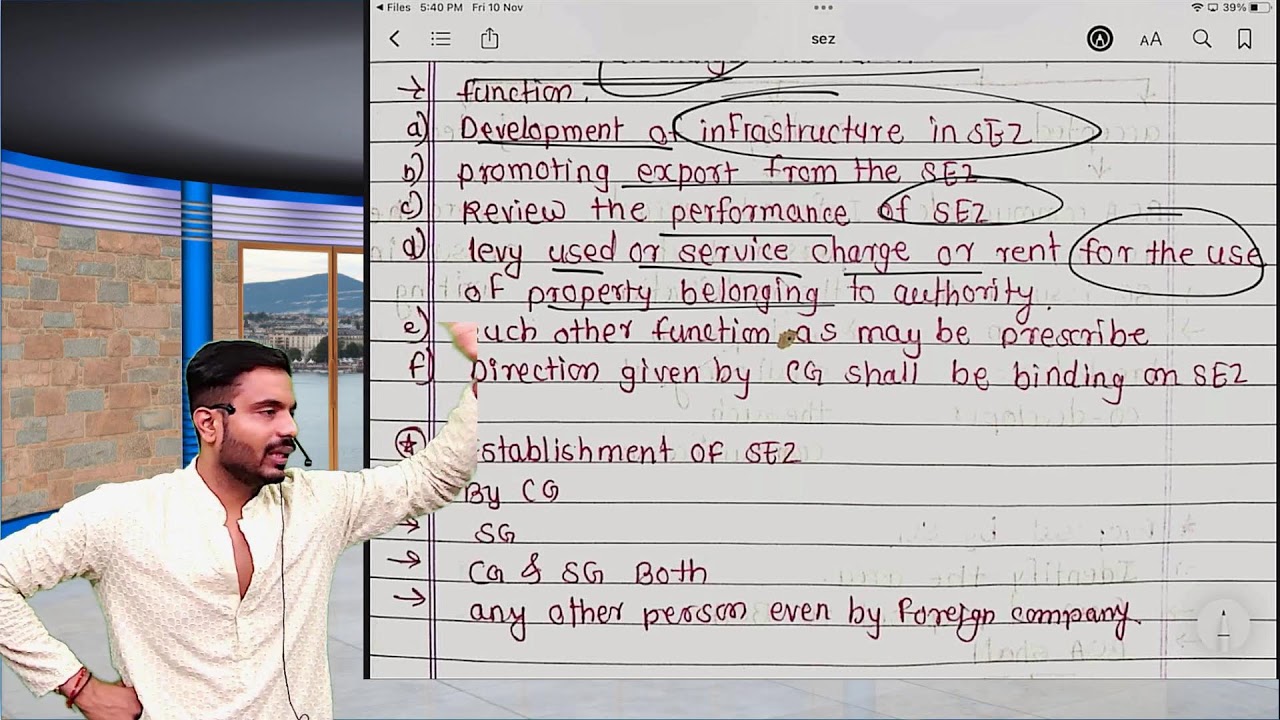 Files 5:40 PM Fri 10 Nov 39%
sez
AA
function.
a) Development of infrastructure in SEZ
b) promoting export from the SEZ
c) Review the performance of SEZ
d) levy used or service charge or rent for the use
of property belonging to authority.
e) uch other function as may be prescribe
f) Direction given by CG shall be binding on SEZ
stablishment of SEZ
By CG
→ SG
→ CG & SG Both
→ any other person even by Foreign company.